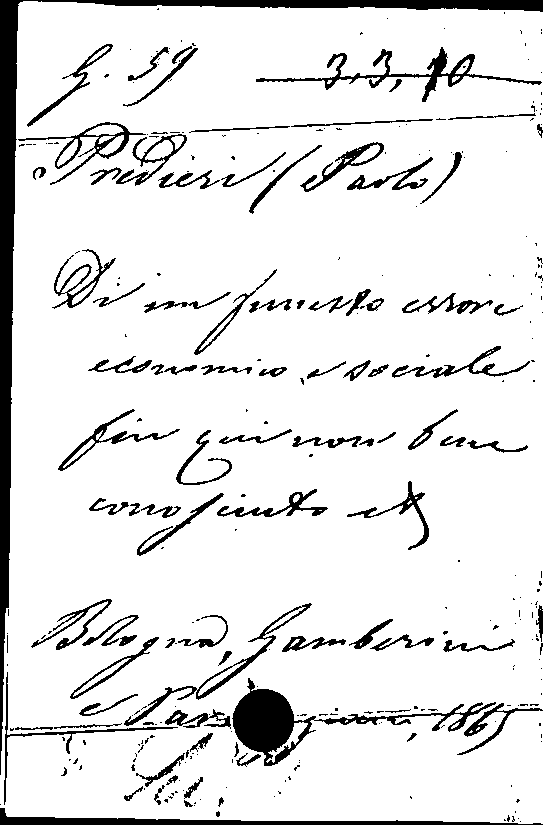 G. 59 3,3,10
Predieri (Paolo)
Di un funesto errore
economico e sociale
fin qui non bene
conosciuto etc
Bologna, Gamberini
e 1865